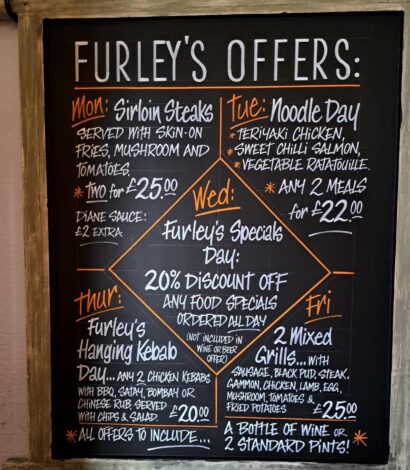 FURLEY'S OFFERS:
Mon: Sirloin Steaks
SERVED WITH SKIN-ON
FRIES, MUSHROOM AND
TOMATOES.
* TWO for £25.00
DIANE SAUCE:
£2 EXTRA
Tue: Noodle Day
* TERIYAKI CHICKEN,
* SWEET CHILLI SALMON,
* VEGETABLE RATATOUILLE.
* ANY 2 MEALS
for £22.00
Wed:
Furley's Specials
Day:
20% DISCOUNT OFF
ANY FOOD SPECIALS
ORDERED ALL DAY
(NOT INCLUDED IN
WINE OR BEER
OFFER!)
Thur:
Furley's
Hanging Kebab
Day... ANY 2 CHICKEN KEBABS
WITH BBQ, SATAY, BOMBAY OR
CHINESE RUB, SERVED
WITH CHIPS & SALAD. £20.00
Fri
2 Mixed
Grills... WITH
SAUSAGE, BLACK PUD, STEAK,
GAMMON, CHICKEN, LAMB, EGG,
MUSHROOM, TOMATOES &
FRIED POTATOES £25.00
* ALL OFFERS TO INCLUDE...
A BOTTLE OF WINE OR
2 STANDARD PINTS! *